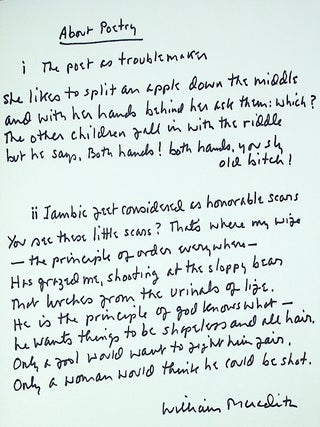 About Poetry
i The poet as troublemaker
She likes to split an apple down the middle
and with her hands behind her ask them: which?
The other children fall in with the riddle
but he says, Both hands! both hands, you sly
old bitch!
ii Iambic feet considered as honorable scars
You see these little scars? That's where my wife
— the principle of order everywhere —
Has grazed me, shooting at the sloppy bear
That lurches from the urinals of life.
He is the principle of god knows what —
he wants things to be shapeless and all hair.
Only a fool would want to fight him fair,
Only a woman would think he could be shot.
William Meredith